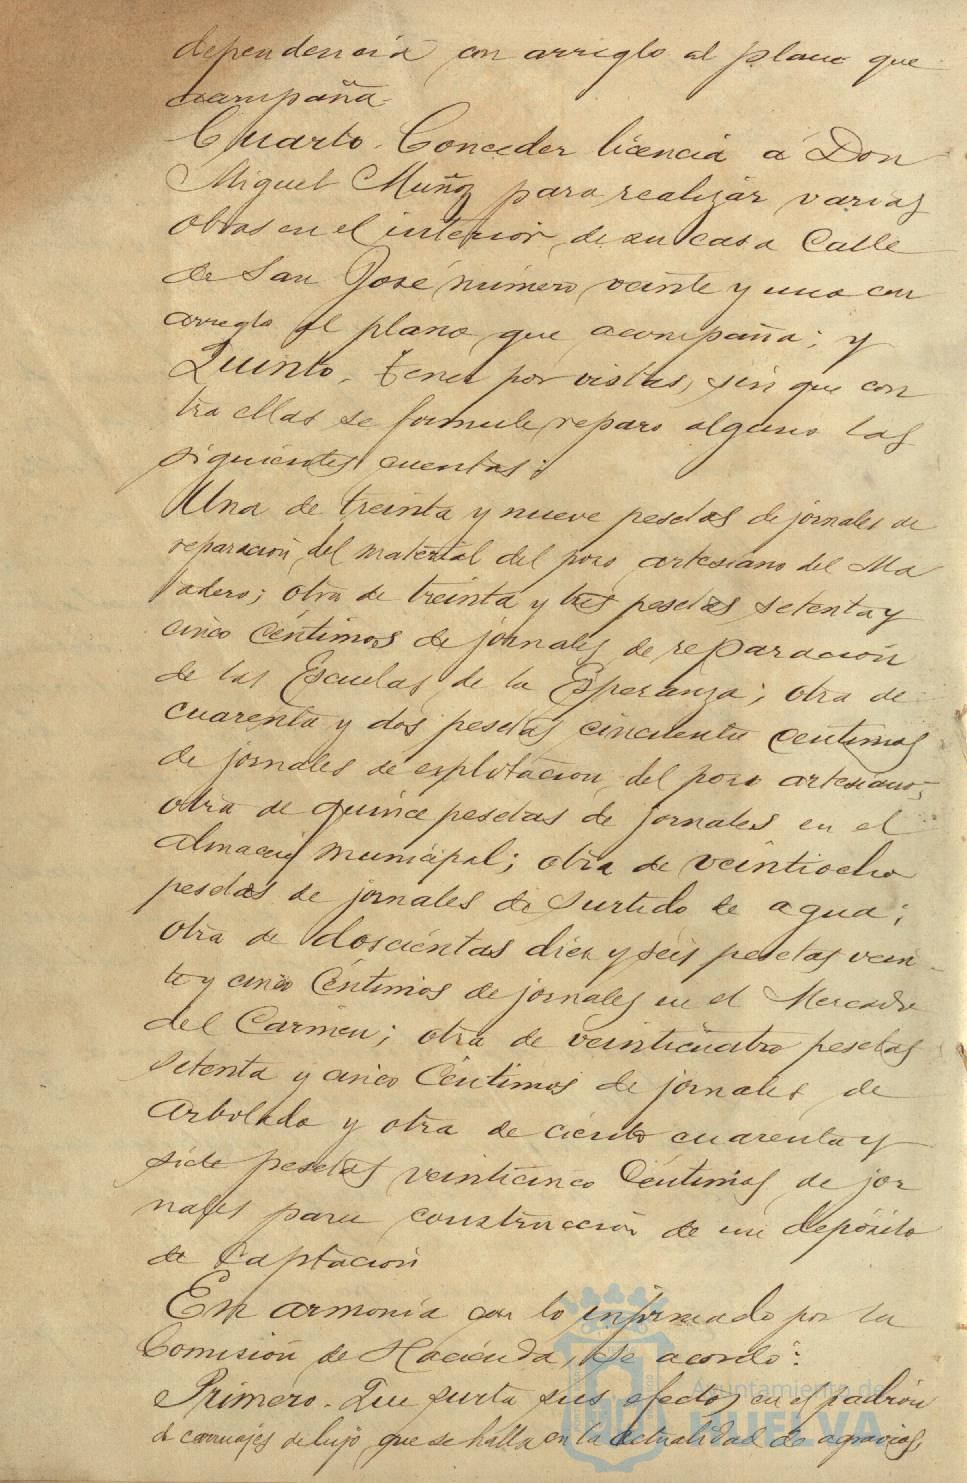 dependencia con arreglo al plano que
acompaña.
Cuarto. Conceder licencia á Don
Miguel Muñoz para realizar varias
obras en el interior de su casa Calle
de San José número veinte y uno con
arreglo al plano que acompaña; y
Quinto. Tener por vistas, sin que con
tra ellas se formule reparo alguno las
siguientes cuentas:
Una de treinta y nueve pesetas de jornales de
reparación del material del pozo artesiano del Ma
tadero; otra de treinta y tres pesetas setenta y
cinco céntimos de jornales de reparación
de las Escuelas de la Esperanza; otra de
cuarenta y dos pesetas cincuenta centimos
de jornales de explotación del pozo artesiano;
otra de quince pesetas de jornales en el
Almacen municipal; otra de veintiocho
pesetas de jornales de surtido de agua;
otra de doscientas diez y seis pesetas vein-
te y cinco Céntimos de jornales en el Mercado
del Carmen; otra de veinticuatro pesetas
setenta y cinco Céntimos de jornales de
Arbolado y otra de ciento cuarenta y
siete pesetas veinticinco Céntimos de jor
nales para construcción de un depósito
de Captación
En armonía con lo informado por la
Comisión de Hacienda, se acordó:
Primero. Que surta sus efectos en el padrón
de carruajes de lujo que se halla en la actualidad de agravios,
Ayuntamiento de
HUELVA